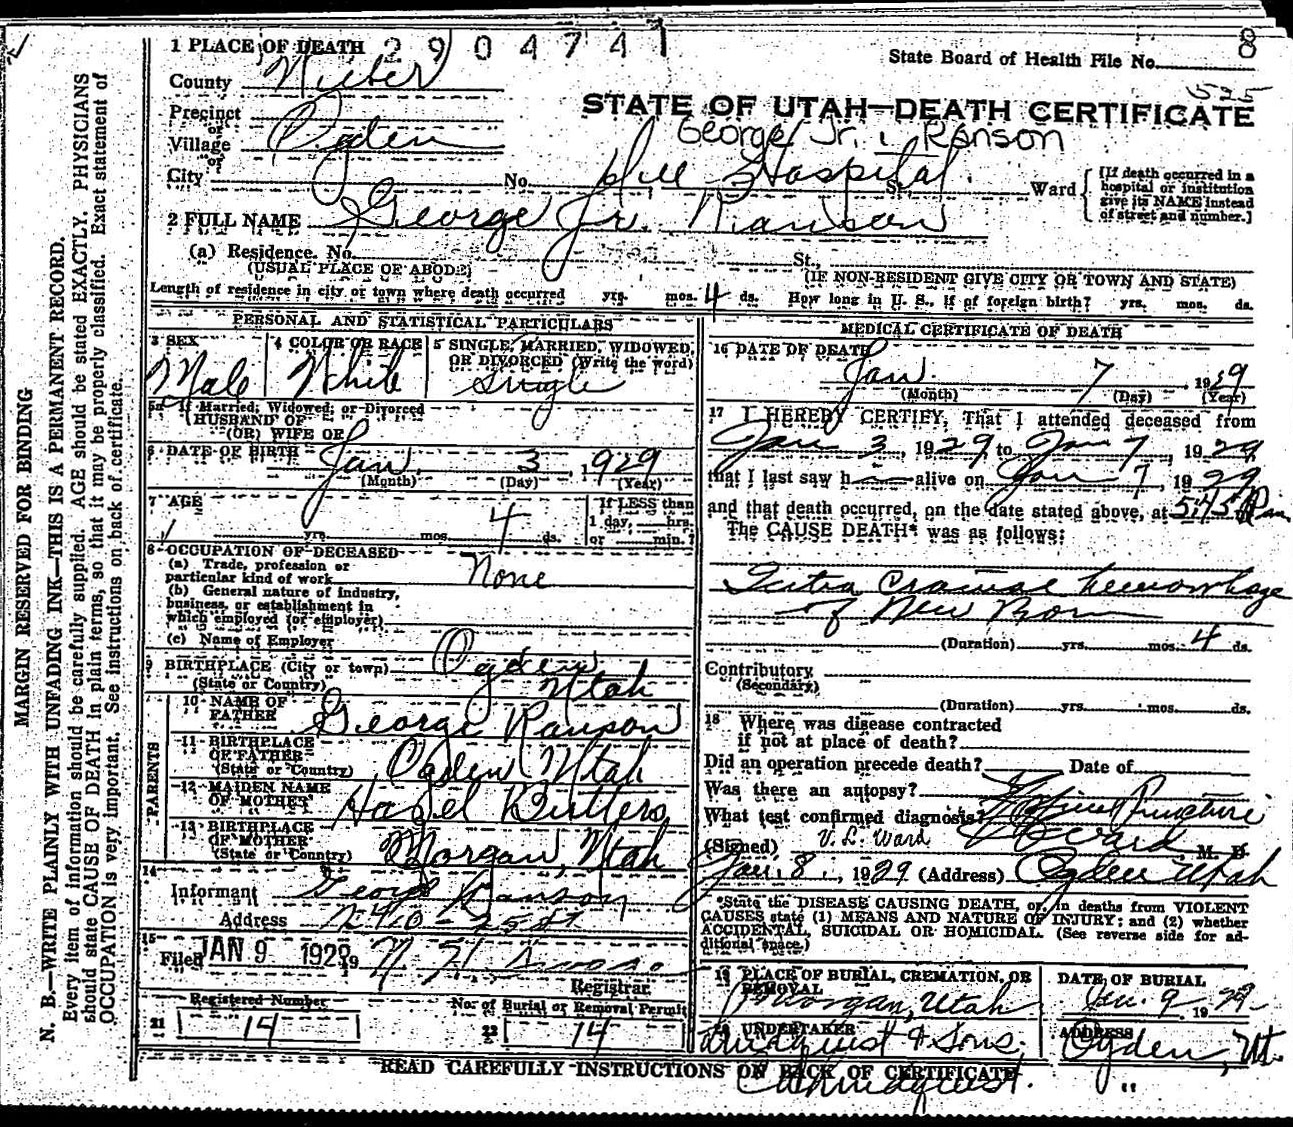 1 PLACE OF DEATH 2904741
State Board of Health File No. 8
County Weber
545
STATE OF UTAH—DEATH CERTIFICATE
Precinct
or
Village Ogden
or
George Jr. Ranson
City No. Dee Hospital. St. Ward
[If death occurred in a
hospital or institution
give its NAME instead
of street and number.]
2 FULL NAME George Jr. Ranson
(a) Residence. No. St.,
(USUAL PLACE OF ABODE) (IF NON-RESIDENT GIVE CITY OR TOWN AND STATE)
Length of residence in city or town where death occurred yrs. mos. 4 ds. How long in U. S., if of foreign birth? yrs. mos. ds.
PERSONAL AND STATISTICAL PARTICULARS
3 SEX
Male
4 COLOR OR RACE
White
5 SINGLE, MARRIED, WIDOWED,
OR DIVORCED (Write the word)
Single
5a If Married, Widowed, or Divorced
HUSBAND OF
(OR) WIFE OF
6 DATE OF BIRTH Jan. 3, 1929
(Month) (Day) (Year)
7 AGE
yrs. mos. 4 ds.
If LESS than
1 day, hrs.
or min.?
8 OCCUPATION OF DECEASED
(a) Trade, profession or
particular kind of work None
(b) General nature of industry,
business, or establishment in
which employed (or employer)
(c) Name of Employer
9 BIRTHPLACE (City or town) Ogden
(State or Country) Utah
PARENTS
10 NAME OF
FATHER George Ranson
11 BIRTHPLACE
OF FATHER
(State or Country) Ogden Utah
12 MAIDEN NAME
OF MOTHER Hazel Butters
13 BIRTHPLACE
OF MOTHER
(State or Country) Morgan, Utah
14
Informant George Ranson
Address 2410 - 25 St
15
Filed JAN 9 1929
Registrar
Registered Number
21 14
No. of Burial or Removal Permit
22 14
MEDICAL CERTIFICATE OF DEATH
16 DATE OF DEATH
Jan. 7 1929
(Month) (Day) (Year)
17 I HEREBY CERTIFY, That I attended deceased from
Jan 3, 1929, to Jan 7, 1929
that I last saw h— alive on Jan 7, 1929
and that death occurred, on the date stated above, at 5:45 Pm.
The CAUSE DEATH* was as follows:
Intra Cranial hemorrhage
of New Born
(Duration) yrs. mos. 4 ds.
Contributory
(Secondary)
(Duration) yrs. mos. ds.
18 Where was disease contracted
if not at place of death?
Did an operation precede death? Date of
Was there an autopsy?
What test confirmed diagnosis? Spine Puncture
(Signed) V. L. Ward Ward M. D
Jan. 8, 1929 (Address) Ogden Utah
*State the DISEASE CAUSING DEATH, or, in deaths from VIOLENT
CAUSES state (1) MEANS AND NATURE OF INJURY; and (2) whether
ACCIDENTAL, SUICIDAL OR HOMICIDAL. (See reverse side for ad-
ditional space.)
19 PLACE OF BURIAL, CREMATION, OR
REMOVAL
Morgan, Utah
DATE OF BURIAL
Jan. 9 1929
20 UNDERTAKER
Lindquist & Sons.
ADDRESS
Ogden, Ut.
READ CAREFULLY INSTRUCTIONS ON BACK OF CERTIFICATE
Lindquist. "
MARGIN RESERVED FOR BINDING
N. B.—WRITE PLAINLY WITH UNFADING INK—THIS IS A PERMANENT RECORD.
Every item of information should be carefully supplied. AGE should be stated EXACTLY. PHYSICIANS
should state CAUSE OF DEATH in plain terms, so that it may be properly classified. Exact statement of
OCCUPATION is very important. See instructions on back of certificate.